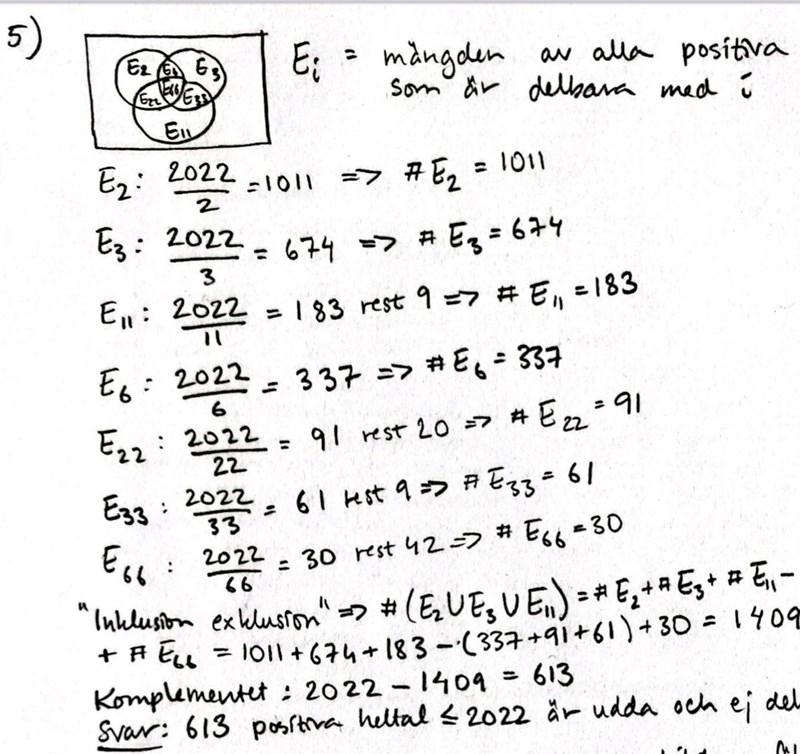 5)
E2 E6 E3
E66
E22 E33
E11
Ei = mängden av alla positiva
som är delbara med i
E2: 2022/2 = 1011 => #E2 = 1011
E3: 2022/3 = 674 => #E3 = 674
E11: 2022/11 = 183 rest 9 => #E11 = 183
E6: 2022/6 = 337 => #E6 = 337
E22: 2022/22 = 91 rest 20 => #E22 = 91
E33: 2022/33 = 61 rest 9 => #E33 = 61
E66: 2022/66 = 30 rest 42 => #E66 = 30
"Inklusion exklusion" => #(E2∪E3∪E11) = #E2 + #E3 + #E11 -
+ #E66 = 1011+674+183-(337+91+61)+30 = 1409
Komplementet: 2022 - 1409 = 613
Svar: 613 positiva heltal ≤ 2022 är udda och ej del